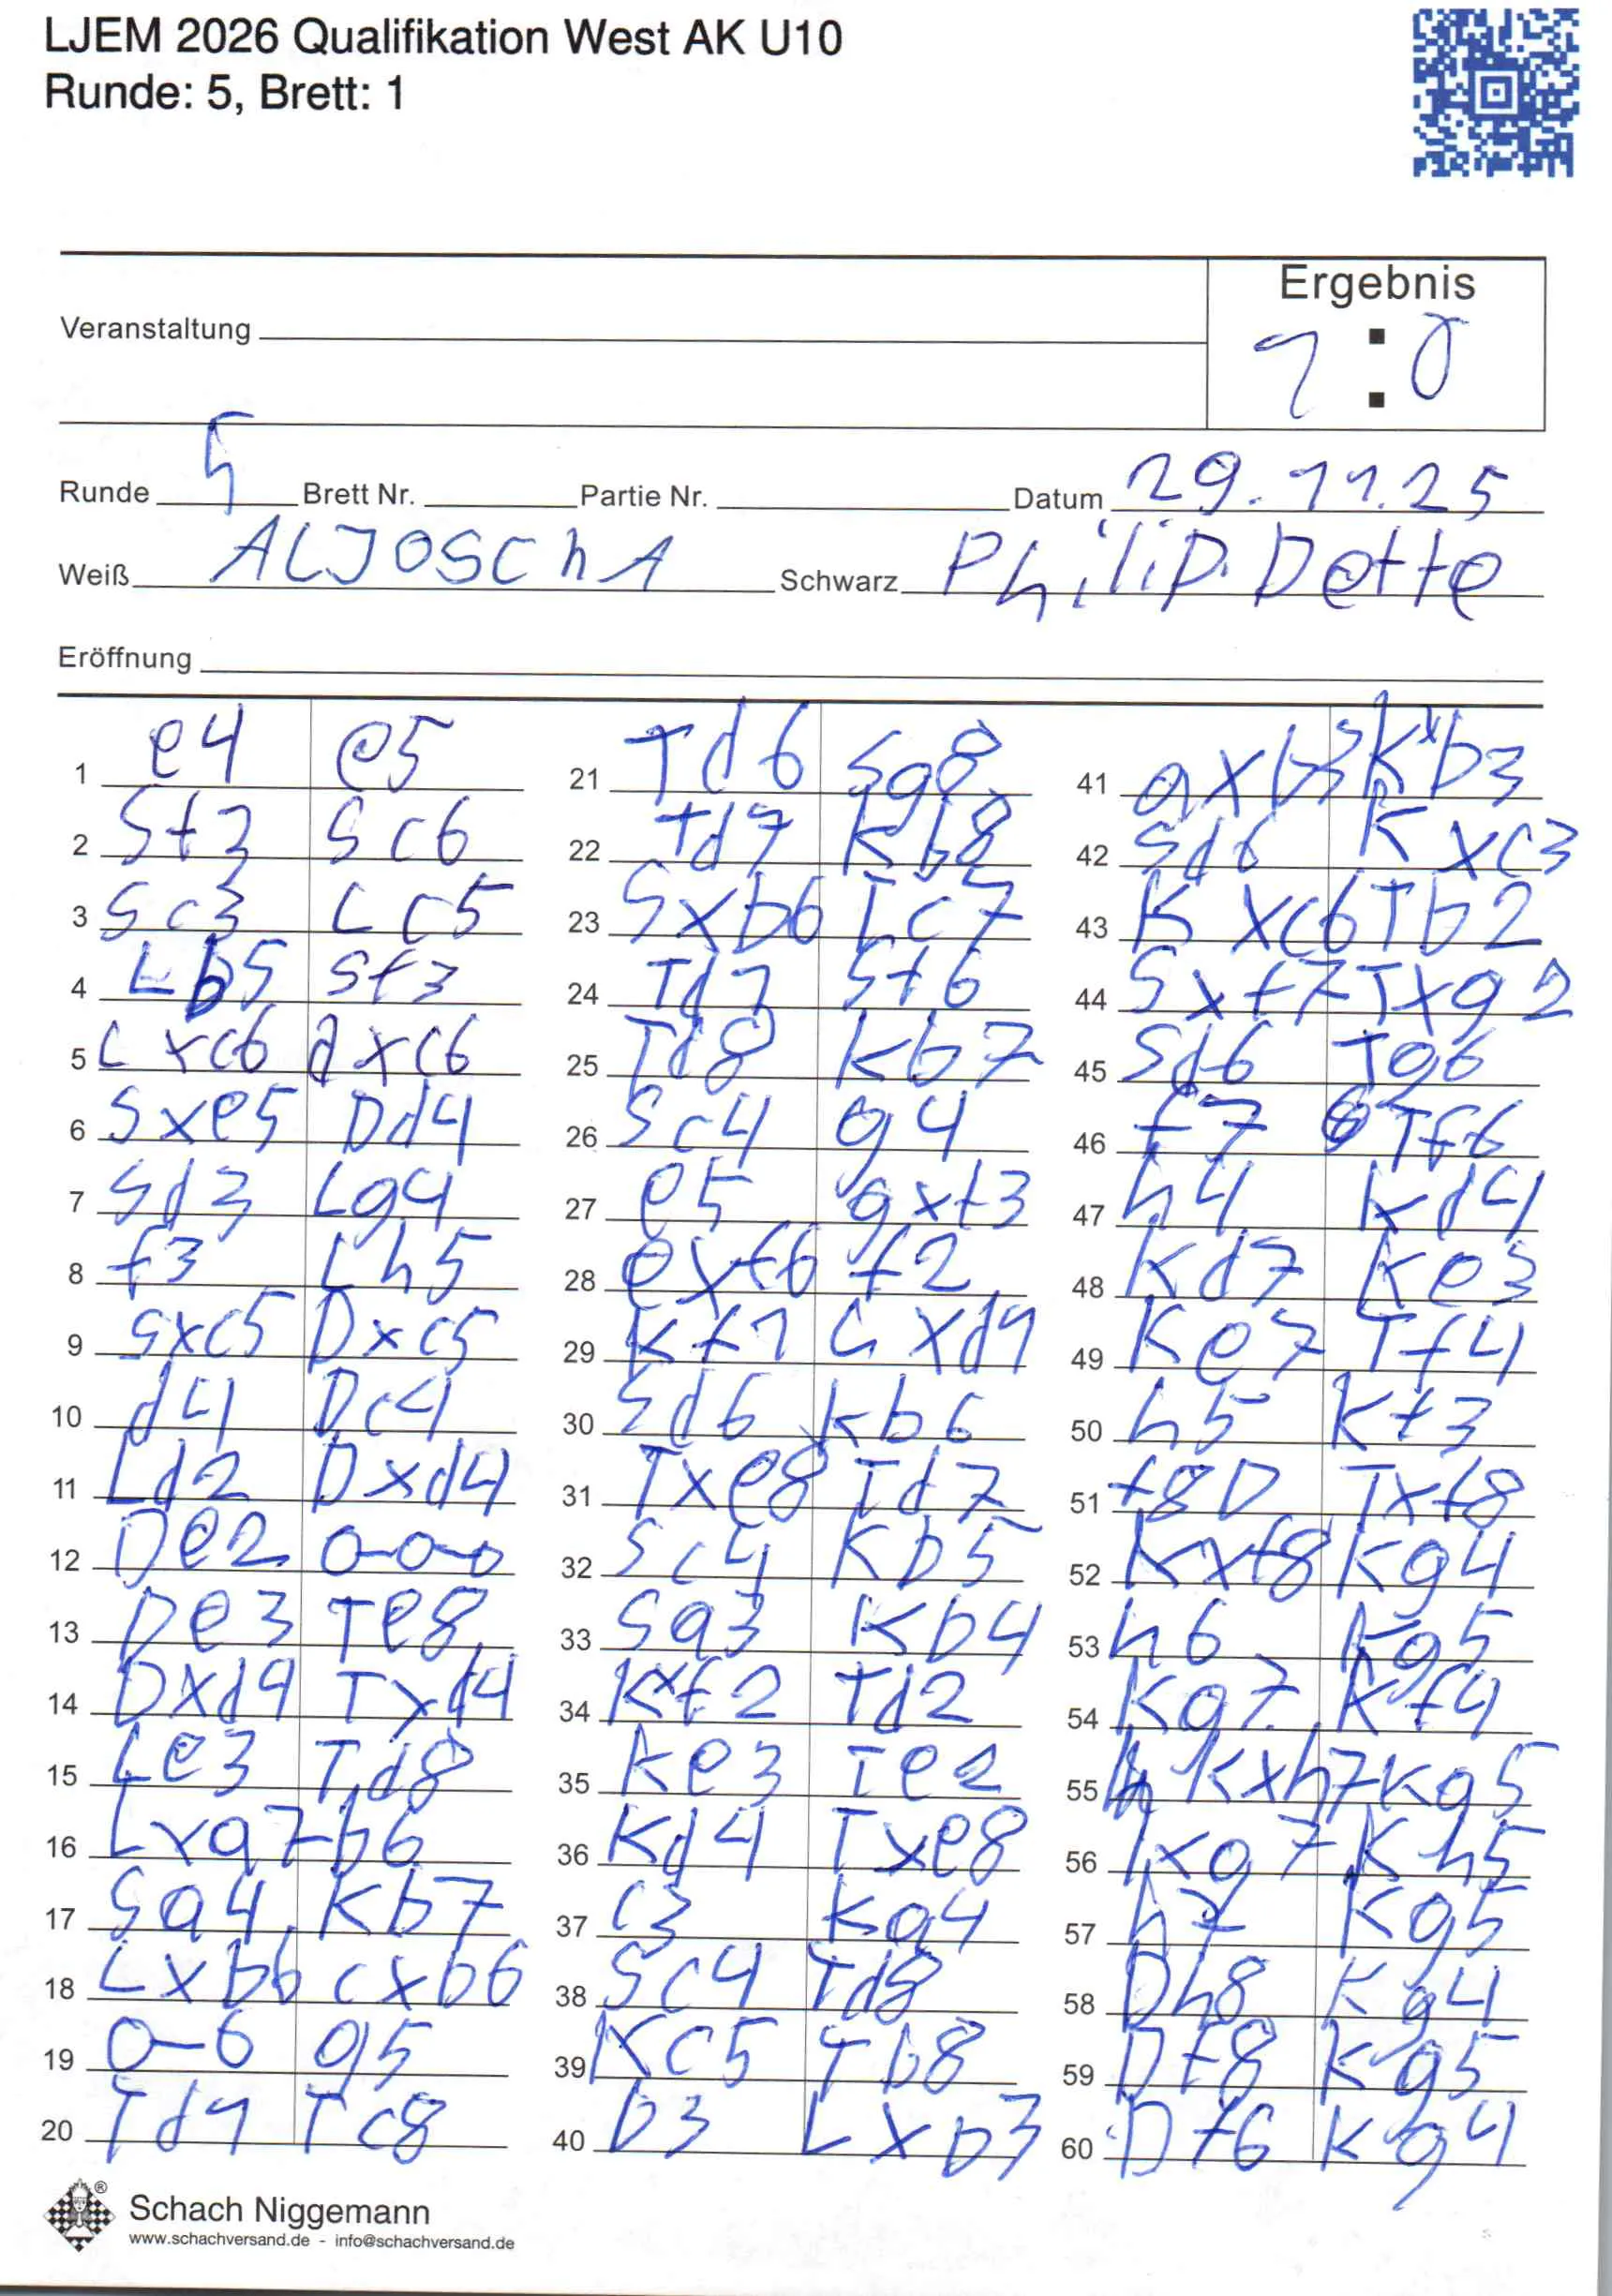 LJEM 2026 Qualifikation West AK U10
Runde: 5, Brett: 1
Ergebnis
1 : 0
Veranstaltung
Runde 5 Brett Nr. Partie Nr. Datum 29.11.25
Weiß ALJOSChA Schwarz Philip Dette
Eröffnung
1 e4 e5
2 Sf3 Sc6
3 Sc3 Lc5
4 Lb5 Sf3
5 Lxc6 dxc6
6 Sxe5 Dd4
7 Sd3 Lg4
8 f3 Lh5
9 Sxc5 Dxc5
10 d4 Dc4
11 Ld2 Dxd4
12 De2 0-0-0
13 De3 Te8
14 Dxd4 Txd4
15 Le3 Td8
16 Lxa7 b6
17 Sa4 Kb7
18 Lxb6 cxb6
19 0-0 g5
20 Td1 Tc8
21 Td6 Sg8
22 Td7 Kb8
23 Sxb6 Lc7
24 Td7 Sf6
25 Td8 Kb7
26 Sc4 g4
27 e5 gxf3
28 exf6 f2
29 Kf1 Lxd1
30 Sd6 Kb6
31 Txe8 Td7
32 Sc4 Kb5
33 Sa3 Kb4
34 Kxf2 Td2
35 Ke3 Te2
36 Kd4 Txe8
37 c3 Ka4
38 Sc4 Td8
39 Kc5 Tb8
40 b3 Lxb3
41 axb3 Kxb3
42 Sd6 Kxc3
43 Kxc6 Tb2
44 Sxf7 Txg2
45 Sd6 Tg6
46 f7 Tf6
47 h4 Kd4
48 Kd7 Ke3
49 Ke7 Tf4
50 h5 Kf3
51 f8D Txf8
52 Kxf8 Kg4
53 h6 Kg5
54 Kg7 Kf4
55 Kxh7 Kg5
56 Kg7 Kh5
57 h7 Kg5
58 Dh8 Kg4
59 Df8 Kg5
60 Df6 Kg4
Schach Niggemann
www.schachversand.de - info@schachversand.de